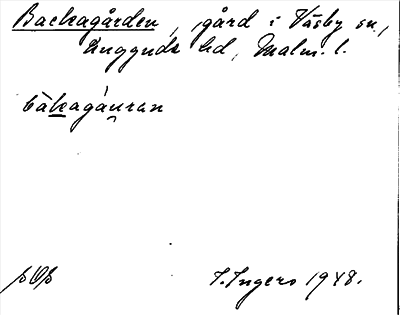 Backagården, gård i Väsby sn.,
Luggude hd, Malm. l.
bàkagáu̯ran
pOp I. Ingers 1948.